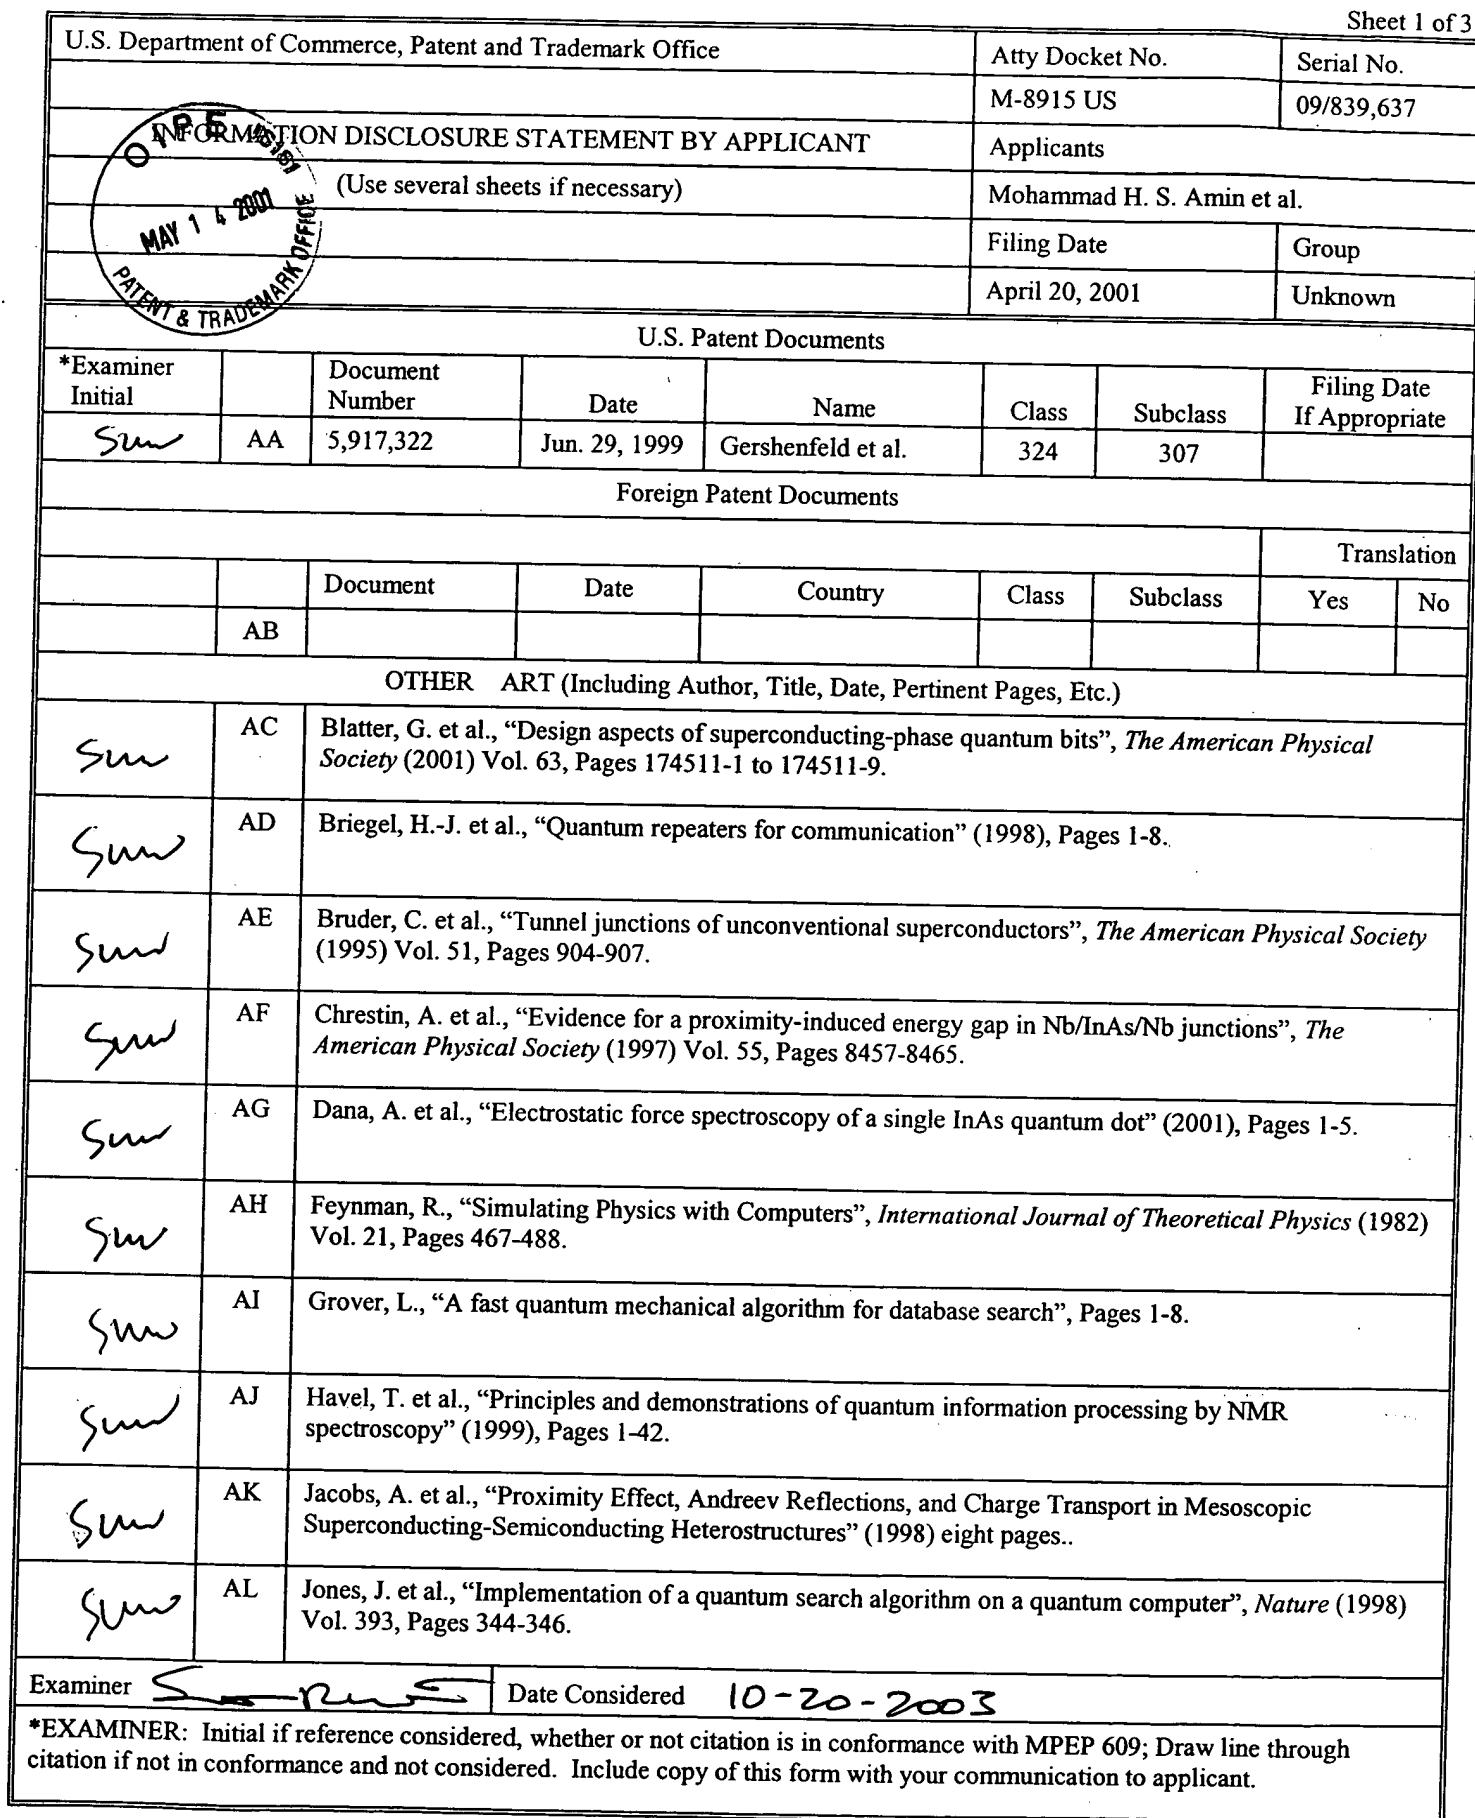 Sheet 1 of 3
U.S. Department of Commerce, Patent and Trademark Office
Atty Docket No.
Serial No.
M-8915 US
09/839,637
INFORMATION DISCLOSURE STATEMENT BY APPLICANT
Applicants
(Use several sheets if necessary)
Mohammad H. S. Amin et al.
Filing Date
Group
April 20, 2001
Unknown
O I P E
MAY 1 4 2001
PATENT & TRADEMARK OFFICE
U.S. Patent Documents
*Examiner
Initial
Document
Number
Date
Name
Class
Subclass
Filing Date
If Appropriate
AA
5,917,322
Jun. 29, 1999
Gershenfeld et al.
324
307
Foreign Patent Documents
Translation
Document
Date
Country
Class
Subclass
Yes
No
AB
OTHER ART (Including Author, Title, Date, Pertinent Pages, Etc.)
AC
Blatter, G. et al., “Design aspects of superconducting-phase quantum bits”, The American Physical
Society (2001) Vol. 63, Pages 174511-1 to 174511-9.
AD
Briegel, H.-J. et al., “Quantum repeaters for communication” (1998), Pages 1-8.
AE
Bruder, C. et al., “Tunnel junctions of unconventional superconductors”, The American Physical Society
(1995) Vol. 51, Pages 904-907.
AF
Chrestin, A. et al., “Evidence for a proximity-induced energy gap in Nb/InAs/Nb junctions”, The
American Physical Society (1997) Vol. 55, Pages 8457-8465.
AG
Dana, A. et al., “Electrostatic force spectroscopy of a single InAs quantum dot” (2001), Pages 1-5.
AH
Feynman, R., “Simulating Physics with Computers”, International Journal of Theoretical Physics (1982)
Vol. 21, Pages 467-488.
AI
Grover, L., “A fast quantum mechanical algorithm for database search”, Pages 1-8.
AJ
Havel, T. et al., “Principles and demonstrations of quantum information processing by NMR
spectroscopy” (1999), Pages 1-42.
AK
Jacobs, A. et al., “Proximity Effect, Andreev Reflections, and Charge Transport in Mesoscopic
Superconducting-Semiconducting Heterostructures” (1998) eight pages..
AL
Jones, J. et al., “Implementation of a quantum search algorithm on a quantum computer”, Nature (1998)
Vol. 393, Pages 344-346.
Examiner
Date Considered 10-20-2003
*EXAMINER: Initial if reference considered, whether or not citation is in conformance with MPEP 609; Draw line through
citation if not in conformance and not considered. Include copy of this form with your communication to applicant.